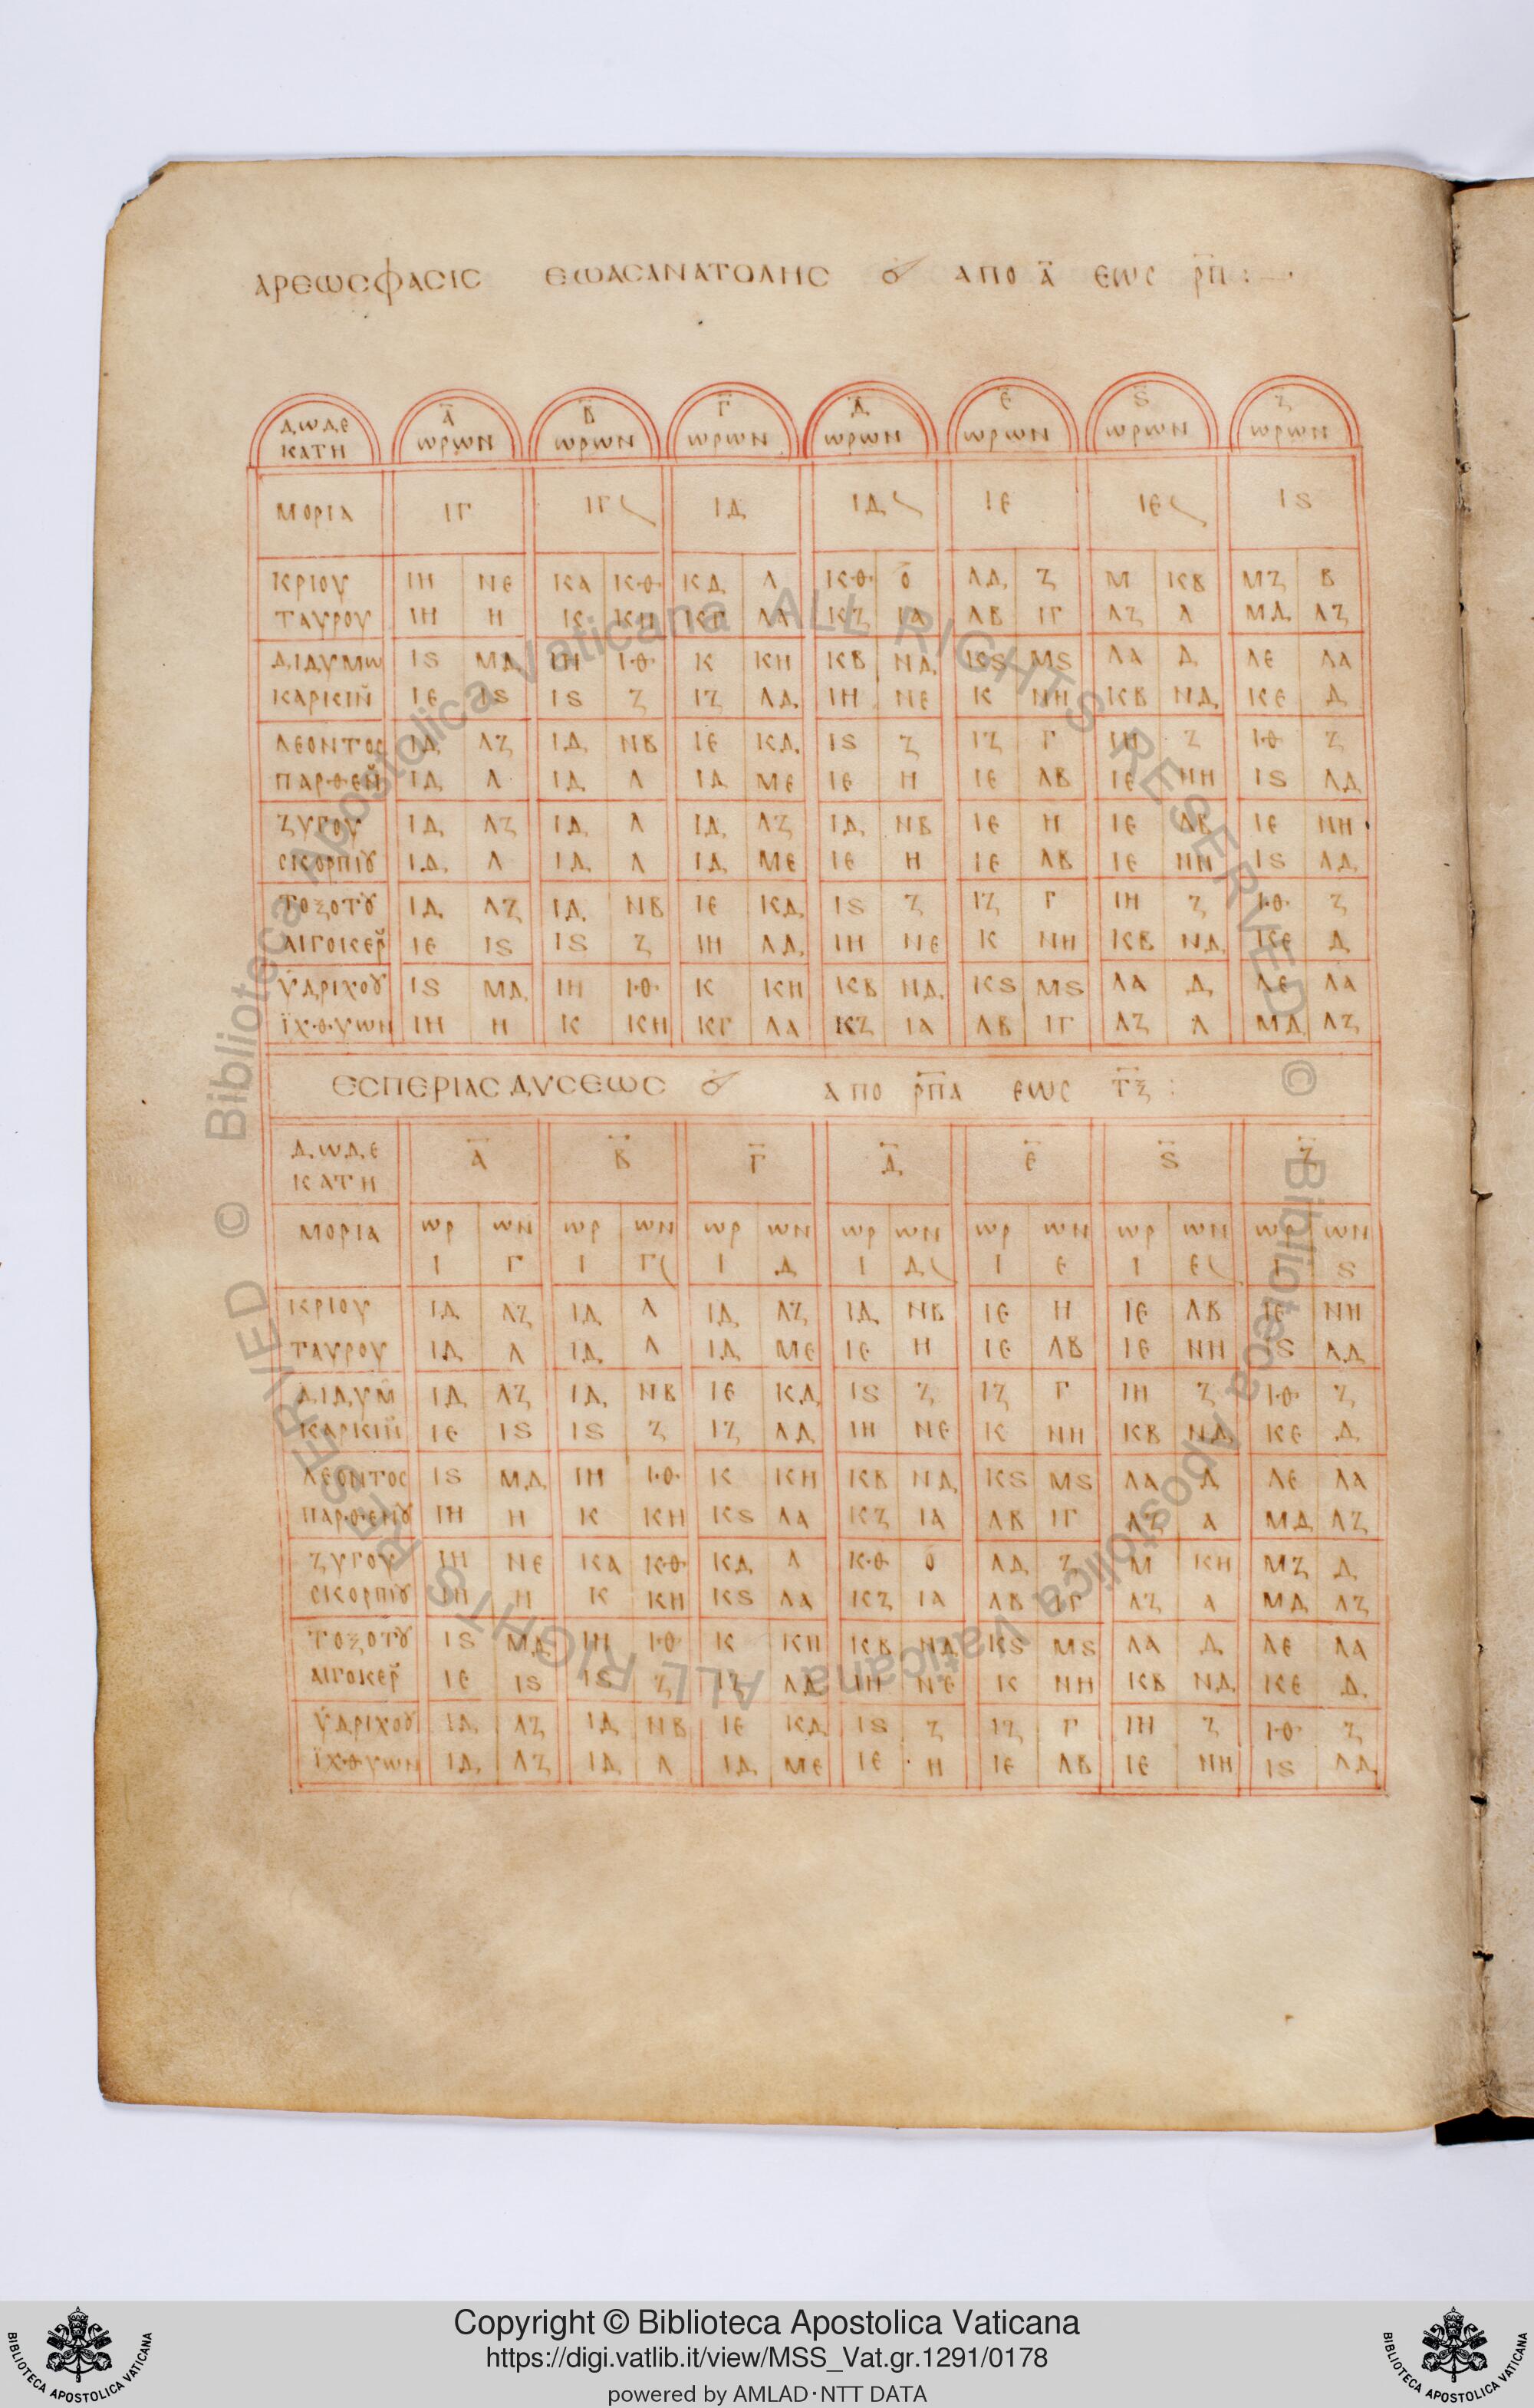 ΑΡΕΩCΦΑCΙC ΕΩΑCΑΝΑΤΟΛΗC ♂ ΑΠΟ Α ΕΩC ΡΠ :—·
ΔΩΔΕ Α Β Γ Δ Ε Ϛ Ζ
ΚΑΤΗ ωρωΝ ωρωΝ ωρωΝ ωρωΝ ωρωΝ ωρωΝ ωρωΝ
ΜΟΡΙΑ ΙΓ ΙΓ𐅵 ΙΔ ΙΔ𐅵 ΙΕ ΙΕ𐅵 ΙϚ
ΚΡΙΟΥ ΙΗ ΝΕ ΚΑ ΚΘ ΚΔ Λ ΚΘ Ο ΛΔ Ζ Μ ΚΒ ΜΖ Β
ΤΑΥΡΟΥ ΙΗ Η Κ ΚΗ ΚΓ ΛΑ ΚΖ ΙΑ ΛΒ ΙΓ ΛΖ Λ ΜΔ ΛΖ
ΔΙΔΥΜω ΙϚ ΜΔ ΙΗ ΙΘ Κ ΚΗ ΚΒ ΝΔ ΚϚ ΜϚ ΛΑ Δ ΛΕ ΛΑ
ΚΑΡΚΙΝ ΙΕ ΙϚ ΙϚ Ζ ΙΖ ΛΔ ΙΗ ΝΕ Κ ΝΗ ΚΒ ΝΔ ΚΕ Δ
ΛΕΟΝΤΟC ΙΔ ΛΖ ΙΔ ΝΒ ΙΕ ΚΔ ΙϚ Ζ ΙΖ Γ ΙΗ Ζ ΙΘ Ζ
ΠΑΡΘΕΝ ΙΔ Λ ΙΔ Λ ΙΔ ΜΕ ΙΕ Η ΙΕ ΛΒ ΙΕ ΝΗ ΙϚ ΛΔ
ΖΥΓΟΥ ΙΔ ΛΖ ΙΔ Λ ΙΔ ΛΖ ΙΔ ΝΒ ΙΕ Η ΙΕ ΛΒ ΙΕ ΝΗ
CΚΟΡΠΙȢ ΙΔ Λ ΙΔ Λ ΙΔ ΜΕ ΙΕ Η ΙΕ ΛΒ ΙΕ ΝΗ ΙϚ ΛΔ
ΤΟΞΟΤȢ ΙΔ ΛΖ ΙΔ ΝΒ ΙΕ ΚΔ ΙϚ Ζ ΙΖ Γ ΙΗ Ζ ΙΘ Ζ
ΑΙΓΟΚΕΡ ΙΕ ΙϚ ΙϚ Ζ ΙΗ ΛΔ ΙΗ ΝΕ Κ ΝΗ ΚΒ ΝΔ ΚΕ Δ
ΫΔΡΙΧΟȢ ΙϚ ΜΔ ΙΗ ΙΘ Κ ΚΗ ΚΒ ΝΔ ΚϚ ΜϚ ΛΑ Δ ΛΕ ΛΑ
ΪΧΘΥωΝ ΙΗ Η Κ ΚΗ ΚΓ ΛΑ ΚΖ ΙΑ ΛΒ ΙΓ ΛΖ Λ ΜΔ ΛΖ
ΕCΠΕΡΙΑC ΔΥCΕΩC ♂ ΑΠΟ ΡΠΑ ΕΩC ΤΞ :
ΔΩΔΕ Α Β Γ Δ Ε Ϛ Ζ
ΚΑΤΗ
ΜΟΡΙΑ ωρ ωΝ ωρ ωΝ ωρ ωΝ ωρ ωΝ ωρ ωΝ ωρ ωΝ ωρ ωΝ
Ι Γ Ι Γ𐅵 Ι Δ Ι Δ𐅵 Ι Ε Ι Ε𐅵 Ι Ϛ
ΚΡΙΟΥ ΙΔ ΛΖ ΙΔ Λ ΙΔ ΛΖ ΙΔ ΝΒ ΙΕ Η ΙΕ ΛΒ ΙΕ ΝΗ
ΤΑΥΡΟΥ ΙΔ Λ ΙΔ Λ ΙΔ ΜΕ ΙΕ Η ΙΕ ΛΒ ΙΕ ΝΗ ΙϚ ΛΔ
ΔΙΔΥΜ ΙΔ ΛΖ ΙΔ ΝΒ ΙΕ ΚΔ ΙϚ Ζ ΙΖ Γ ΙΗ Ζ ΙΘ Ζ
ΚΑΡΚΙΝ ΙΕ ΙϚ ΙϚ Ζ ΙΖ ΛΔ ΙΗ ΝΕ Κ ΝΗ ΚΒ ΝΔ ΚΕ Δ
ΛΕΟΝΤΟC ΙϚ ΜΔ ΙΗ ΙΘ Κ ΚΗ ΚΒ ΝΔ ΚϚ ΜϚ ΛΑ Δ ΛΕ ΛΑ
ΠΑΡΘΕΝȢ ΙΗ Η Κ ΚΗ ΚϚ ΛΑ ΚΖ ΙΑ ΛΒ ΙΓ ΛΖ Α ΜΔ ΛΖ
ΖΥΓΟΥ ΙΗ ΝΕ ΚΑ ΚΘ ΚΔ Λ ΚΘ Ο ΛΔ Ζ Μ ΚΗ ΜΖ Δ
CΚΟΡΠΙȢ ΙΗ Η Κ ΚΗ ΚϚ ΛΑ ΚΖ ΙΑ ΛΒ ΙΓ ΛΖ Α ΜΔ ΛΖ
ΤΟΞΟΤȢ ΙϚ ΜΔ ΙΗ ΙΘ Κ ΚΗ ΚΒ ΝΔ ΚϚ ΜϚ ΛΑ Δ ΛΕ ΛΑ
ΑΙΓΟΚΕΡ ΙΕ ΙϚ ΙϚ Ζ ΙΖ ΛΔ ΙΗ ΝΕ Κ ΝΗ ΚΒ ΝΔ ΚΕ Δ
ΫΔΡΙΧΟȢ ΙΔ ΛΖ ΙΔ ΝΒ ΙΕ ΚΔ ΙϚ Ζ ΙΖ Γ ΙΗ Ζ ΙΘ Ζ
ΪΧΘΥωΝ ΙΔ ΛΖ ΙΔ Λ ΙΔ ΜΕ ΙΕ Η ΙΕ ΛΒ ΙΕ ΝΗ ΙϚ ΛΔ
© Biblioteca Apostolica Vaticana ALL RIGHTS RESERVED
© Biblioteca Apostolica Vaticana ALL RIGHTS RESERVED
Copyright © Biblioteca Apostolica Vaticana
https://digi.vatlib.it/view/MSS_Vat.gr.1291/0178
powered by AMLAD·NTT DATA
BIBLIOTECA APOSTOLICA VATICANA
BIBLIOTECA APOSTOLICA VATICANA